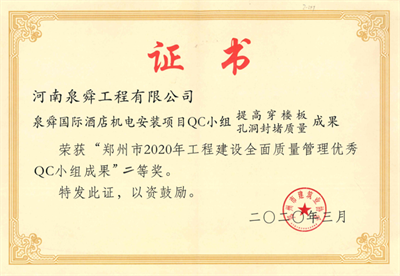 证书
河南泉舜工程有限公司
泉舜国际酒店机电安装项目QC小组 提高穿楼板孔洞封堵质量 成果
荣获“郑州市2020年工程建设全面质量管理优秀
QC小组成果”二等奖。
特发此证，以资鼓励。
二〇二〇年三月